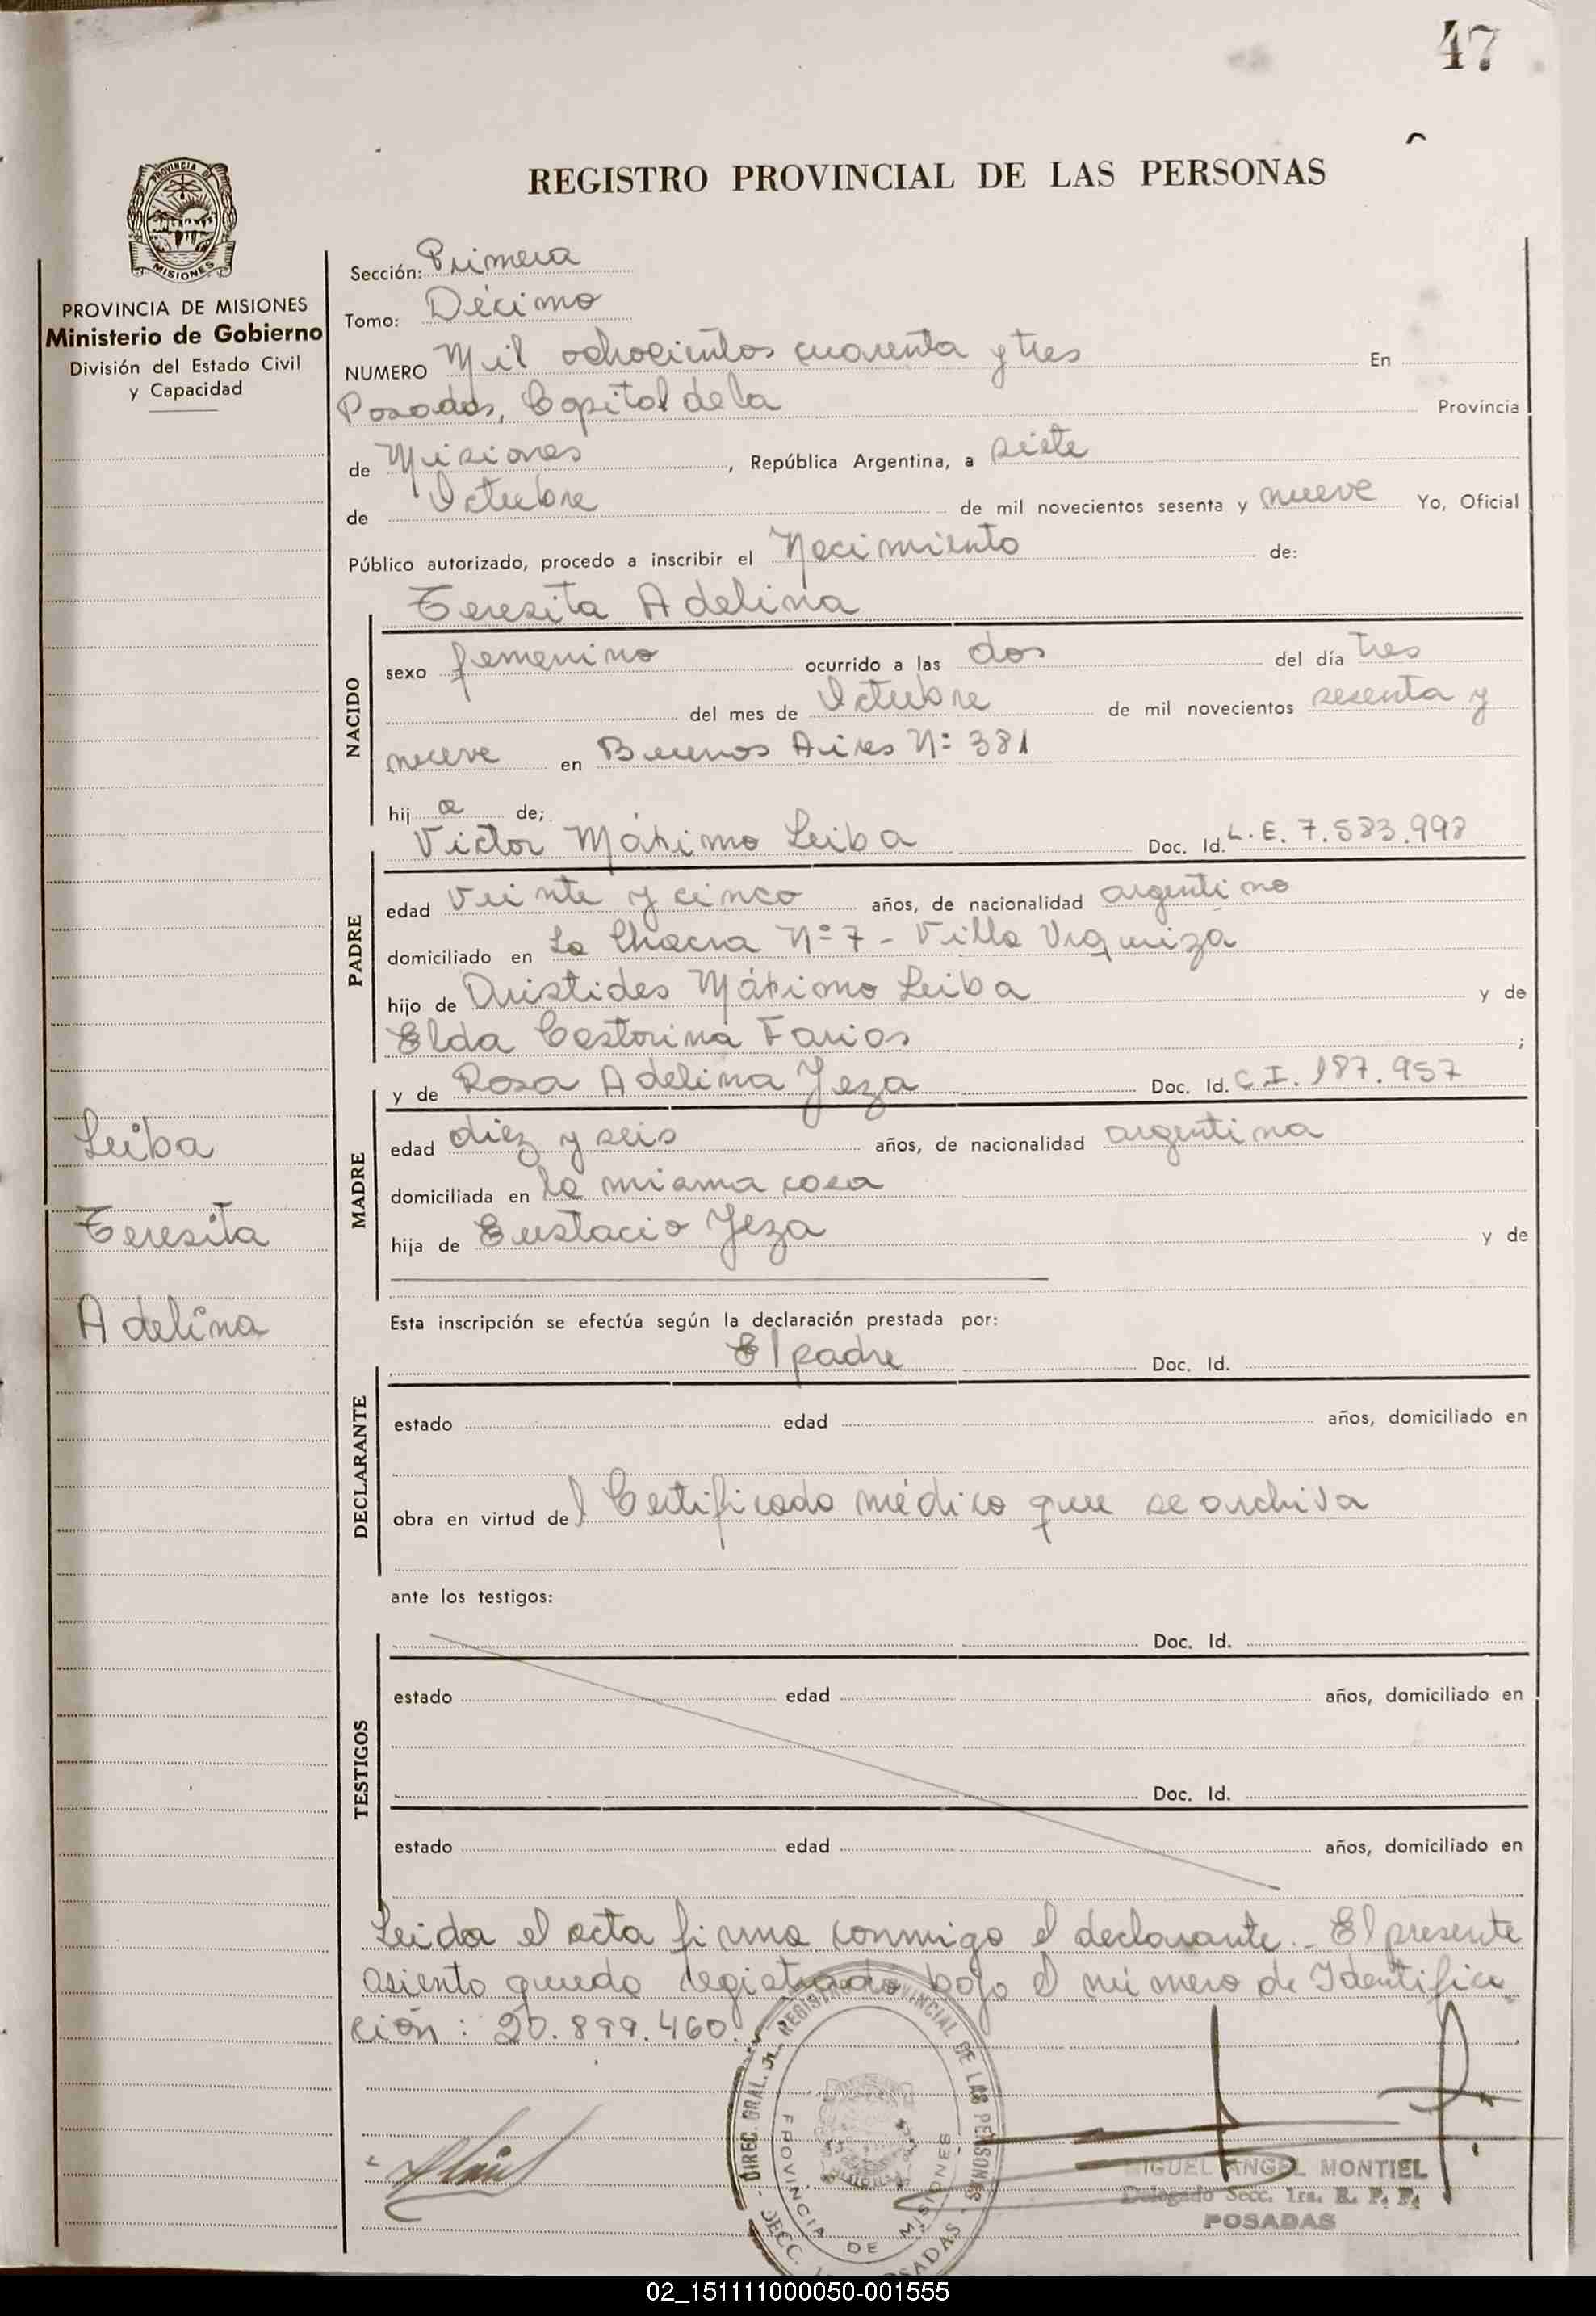 47
REGISTRO PROVINCIAL DE LAS PERSONAS
PROVINCIA DE MISIONES
MISIONES
PROVINCIA DE MISIONES
Ministerio de Gobierno
División del Estado Civil
y Capacidad
Sección: Primera
Tomo: Décimo
NUMERO Mil ochocientos cuarenta y tres En
Posadas, Capital de la Provincia
de Misiones, República Argentina, a siete
de Octubre de mil novecientos sesenta y nueve Yo, Oficial
Público autorizado, procedo a inscribir el Nacimiento de:
Teresita Adelina
NACIDO
sexo femenino ocurrido a las dos del día tres
del mes de Octubre de mil novecientos sesenta y
nueve en Buenos Aires Nº 381
hij a de;
Victor Máximo Leiba Doc. Id. L.E. 7.583.998
PADRE
edad veinte y cinco años, de nacionalidad argentino
domiciliado en La Chacra Nº 7 - Villa Urquiza
hijo de Aristides Máximo Leiba y de
Elda Castorina Farias ;
y de Rosa Adelina Yeza Doc. Id. C.I. 187.957
MADRE
edad diez y seis años, de nacionalidad argentina
domiciliada en la misma casa
hija de Eustacio Yeza y de
Leiba
Teresita
Adelina
Esta inscripción se efectúa según la declaración prestada por:
El padre Doc. Id.
DECLARANTE
estado edad años, domiciliado en
obra en virtud del Certificado médico que se archiva
ante los testigos:
Doc. Id.
TESTIGOS
estado edad años, domiciliado en
Doc. Id.
estado edad años, domiciliado en
Leida el acta firma conmigo el declarante.- El presente
asiento queda registrado bajo el número de Identifica
ción: 20.899.460.
DIREC. GRAL. REGISTRO PROVINCIAL DE LAS PERSONAS
PROVINCIA DE MISIONES
SECC. POSADAS
MIGUEL ANGEL MONTIEL
Delegado Secc. 1ra. R. P. P.
POSADAS
02_151111000050-001555